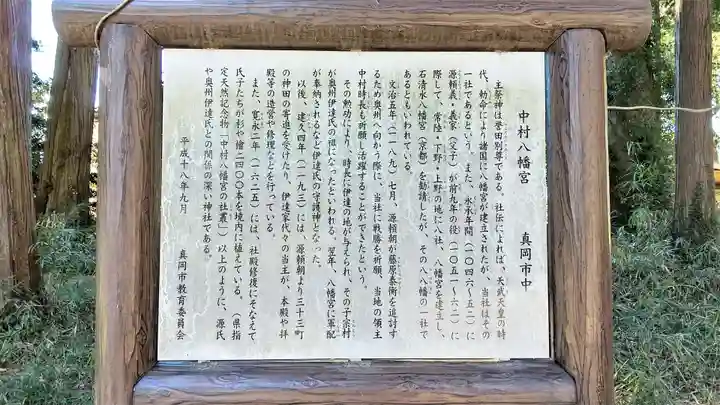 中村八幡宮　　真岡市中
主祭神は誉田別尊である。社伝によれば、天武天皇の時
代、勅命により諸国に八幡宮が建立されたが、当社はその
一社であるという。また、永承年間（一〇四六～五二）に
源頼義・義家（父子）が前九年の役（一〇五一～六二）に
際して、常陸・下野・上野の地に八社、八幡宮を建立し、
石清水八幡宮（京都）を勧請したが、その八八幡の一社で
あるともいわれている。
文治五年（一一八九）七月、源頼朝が藤原泰衡を追討す
るため奥州へ向かう際に、当社に戦勝を祈願、当地の領主
中村時長も祈願し活躍することができたという。
その勲功により、時長に伊達の地が与えられ、その子宗村
が奥州伊達氏の祖になったといわれる。翌年、八幡宮に軍配
が奉納されるなど伊達氏の守護神となった。
以後、建久四年（一一九三）には、源頼朝より三十三町
の神田の寄進を受けたり、伊達家代々の当主が、本殿や拝
殿等の造営や修理などを行っている。
また、寛永二年（一六二五）には、社殿修復にそなえて
氏子たちが杉や檜二四〇〇本を境内に植えている。（県指
定天然記念物「中村八幡宮の社叢」）以上のように、源氏
や奥州伊達氏との関係の深い神社である。
平成十八年九月　　真岡市教育委員会